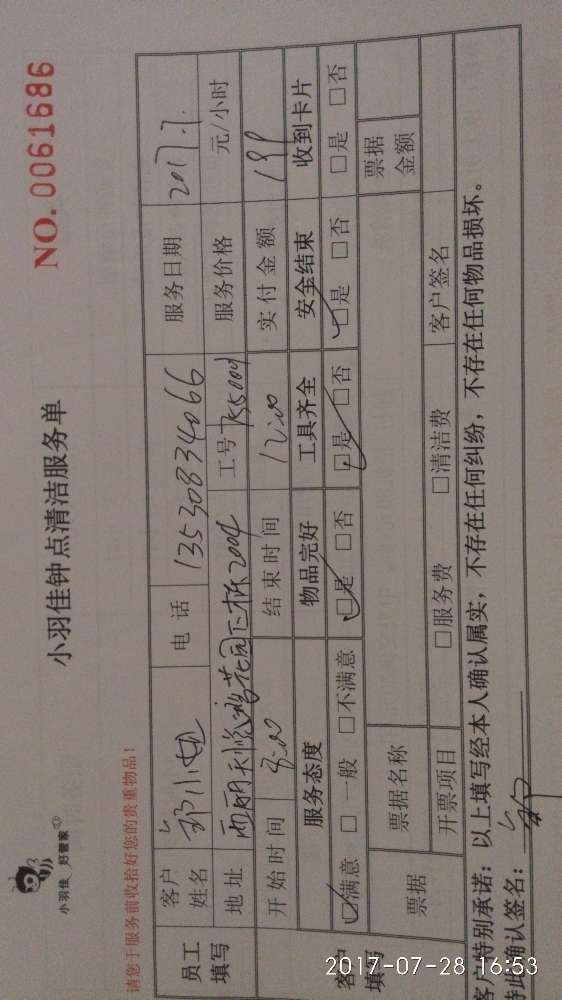 小羽佳 好管家
小羽佳钟点清洁服务单
NO. 0061686
请您于服务前收拾好您的贵重物品！
员工填写
客户姓名 郭小姐 电话 13530834066 服务日期 2017.7.
地址 工号 服务价格 元/小时
开始时间 8:00 结束时间 12:00 实付金额
客户填写
服务态度 物品完好 工具齐全 安全结束 收到卡片
☑满意 □一般 □不满意 ☑是 □否 ☑是 □否 ☑是 □否 □是 □否
票据 票据名称 票据金额
开票项目 □服务费 □清洁费 客户签名
客户特别承诺：以上填写经本人确认属实，不存在任何纠纷，不存在任何物品损坏。
特此确认签名：
2017-07-28 16:53